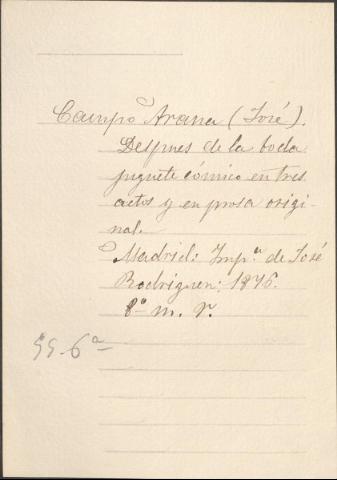 Campo Arana (José).
Despues de la boda
juguete cómico en tres
actos y en prosa origi-
nal.
Madrid: Impª de José
Rodriguez: 1876.
8º m. r.
55-6ª